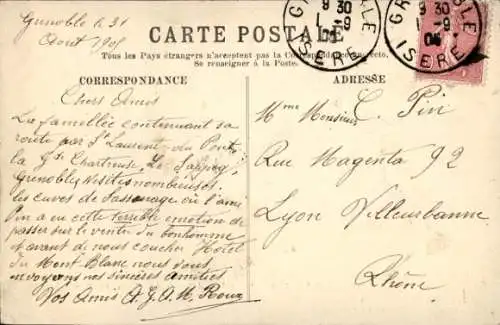 Grenoble le 31
Aout 190
CARTE POSTALE
Tous les Pays étrangers n'acceptent pas la Correspondance au recto.
Se renseigner à la Poste.
GRENOBLE
9 30
1 - 9
05
ISERE
CORRESPONDANCE
Chers Amis
La famille continuant sa
route par St Laurent du Pont
la Gde Chartreuse, Le Sappey
Grenoble Visites nombreuses
les cuves de Sassenage où l'ami
Pin a eu cette terrible émotion de
passer sur le ventre du bonhomme
et avant de nous coucher Hotel
du Mont Blanc nous vous
envoyons nos sincères amitiés
Vos Amis A. G. A. M. Roux
ADRESSE
Mme Monsieur C. Pin
Rue Magenta 92
Lyon Villeurbanne
Rhône